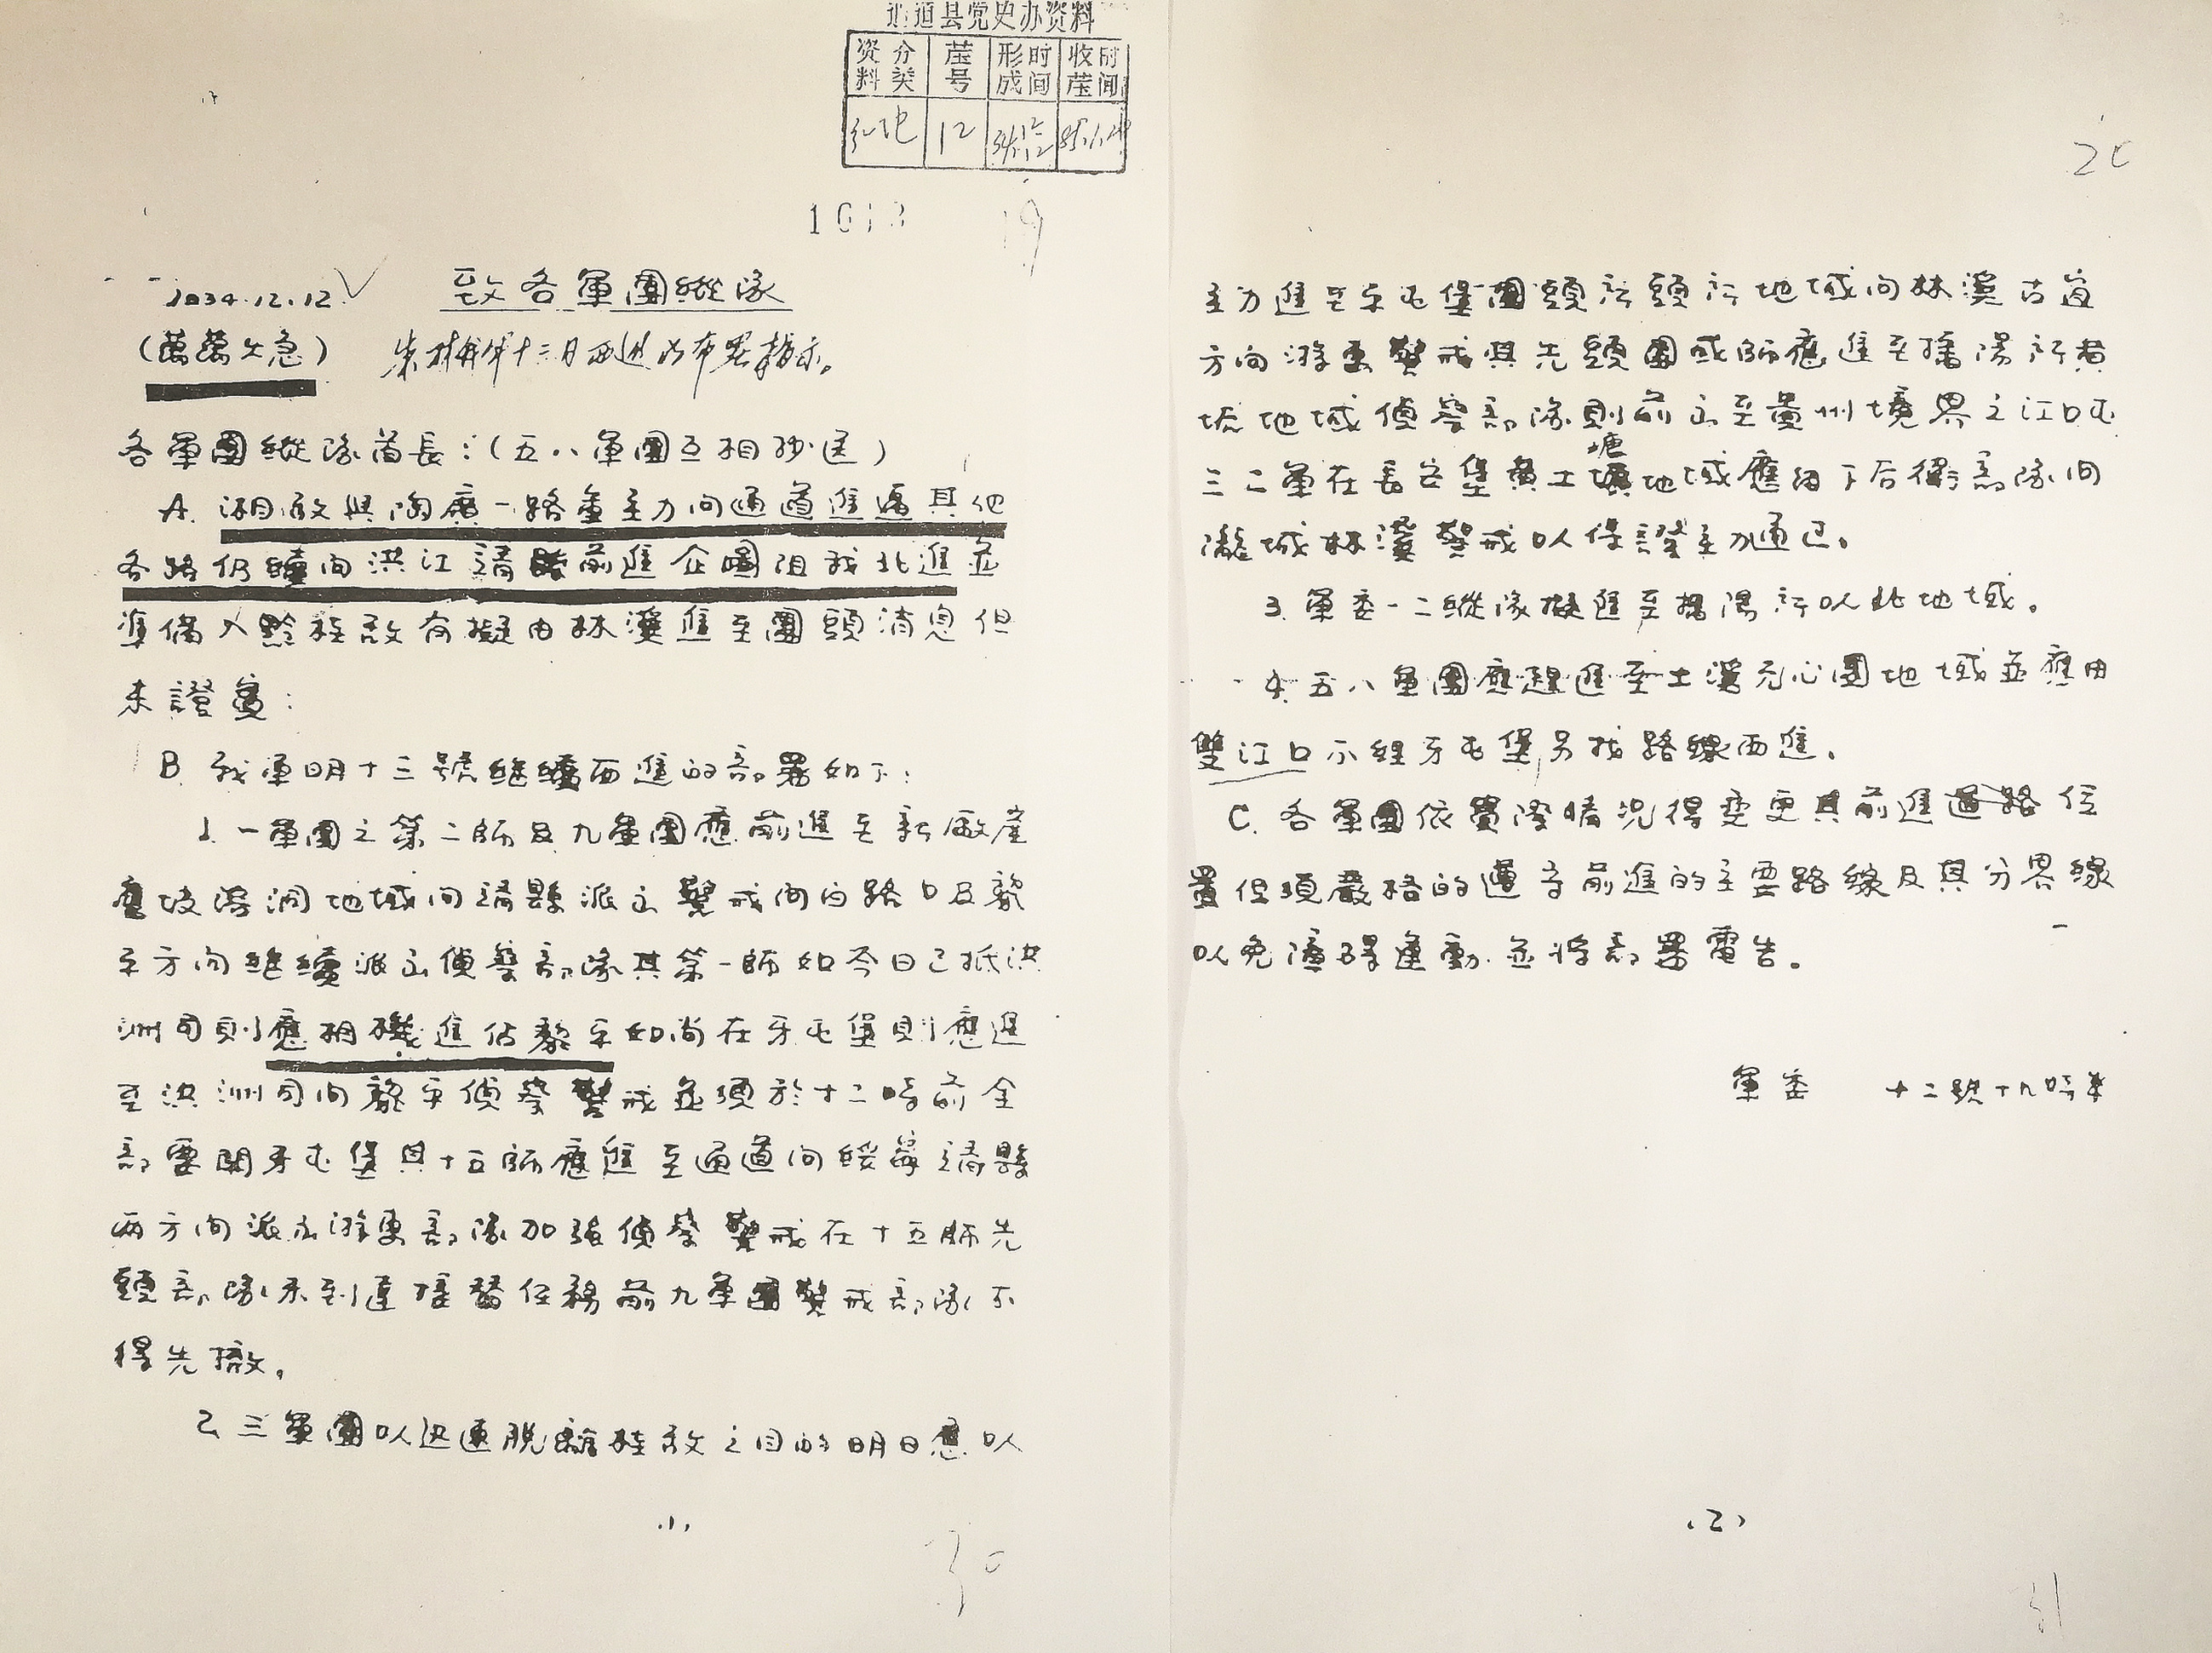 通道县党史办资料
资料 分类 | 卷号 | 形成 时间 | 收卷 时间
12 34.12.12
19
1934.12.12
致各軍團縱隊
(萬萬火急)
各軍團縱隊首長:(五八軍團互相抄送)
A. 湘敵與陶廣一路軍主力向通道進逼其他
各路仍續向洪江靖縣前進企圖阻我北進並
準備入黔桂敵有擬由林溪進至團頭消息但
未證實:
B. 我軍明十三號繼續西進的部署如下:
1. 一軍團之第二師及九軍團應前進至新廠崖
鹰坡溶洞地域向靖縣派出警戒向白路口及黎
平方向繼續派出偵察部隊其第一師如今日已抵洪
洲司則應相機進佔黎平如尚在牙屯堡則應進
至洪洲司向黎平偵察警戒並須於十二時前全
部要開牙屯堡其十五師應進至通道向綏寧靖縣
兩方向派出游擊部隊加强偵察警戒在十五師先
頭部隊未到達接替任務前九軍團警戒部隊不
得先撤。
2. 三軍團以迅速脱離桂敵之目的明日應以
(1)
30
20
主力進至牙屯堡團頭所頭所地域向林溪古宜
方向游擊警戒其先頭團或師應進至播陽所黄
垢地域偵察部隊則前出至貴州境界之江口屯
三二軍在長安堡黄土塘地域應留下后衛部隊向
瀧城林溪警戒以保證主力通过。
3. 軍委一二縱隊擬進至播陽所以北地域。
4. 五八軍團應趕進至土溪元心團地域並應由
雙江口不經牙屯堡另找路線西進。
C. 各軍團依實際情况得变更其前進道路位
置但須嚴格的遵守前進的主要路線及其分界線
以免障碍運動並將部署電告。
軍委 十二號十九時半
(2)
31